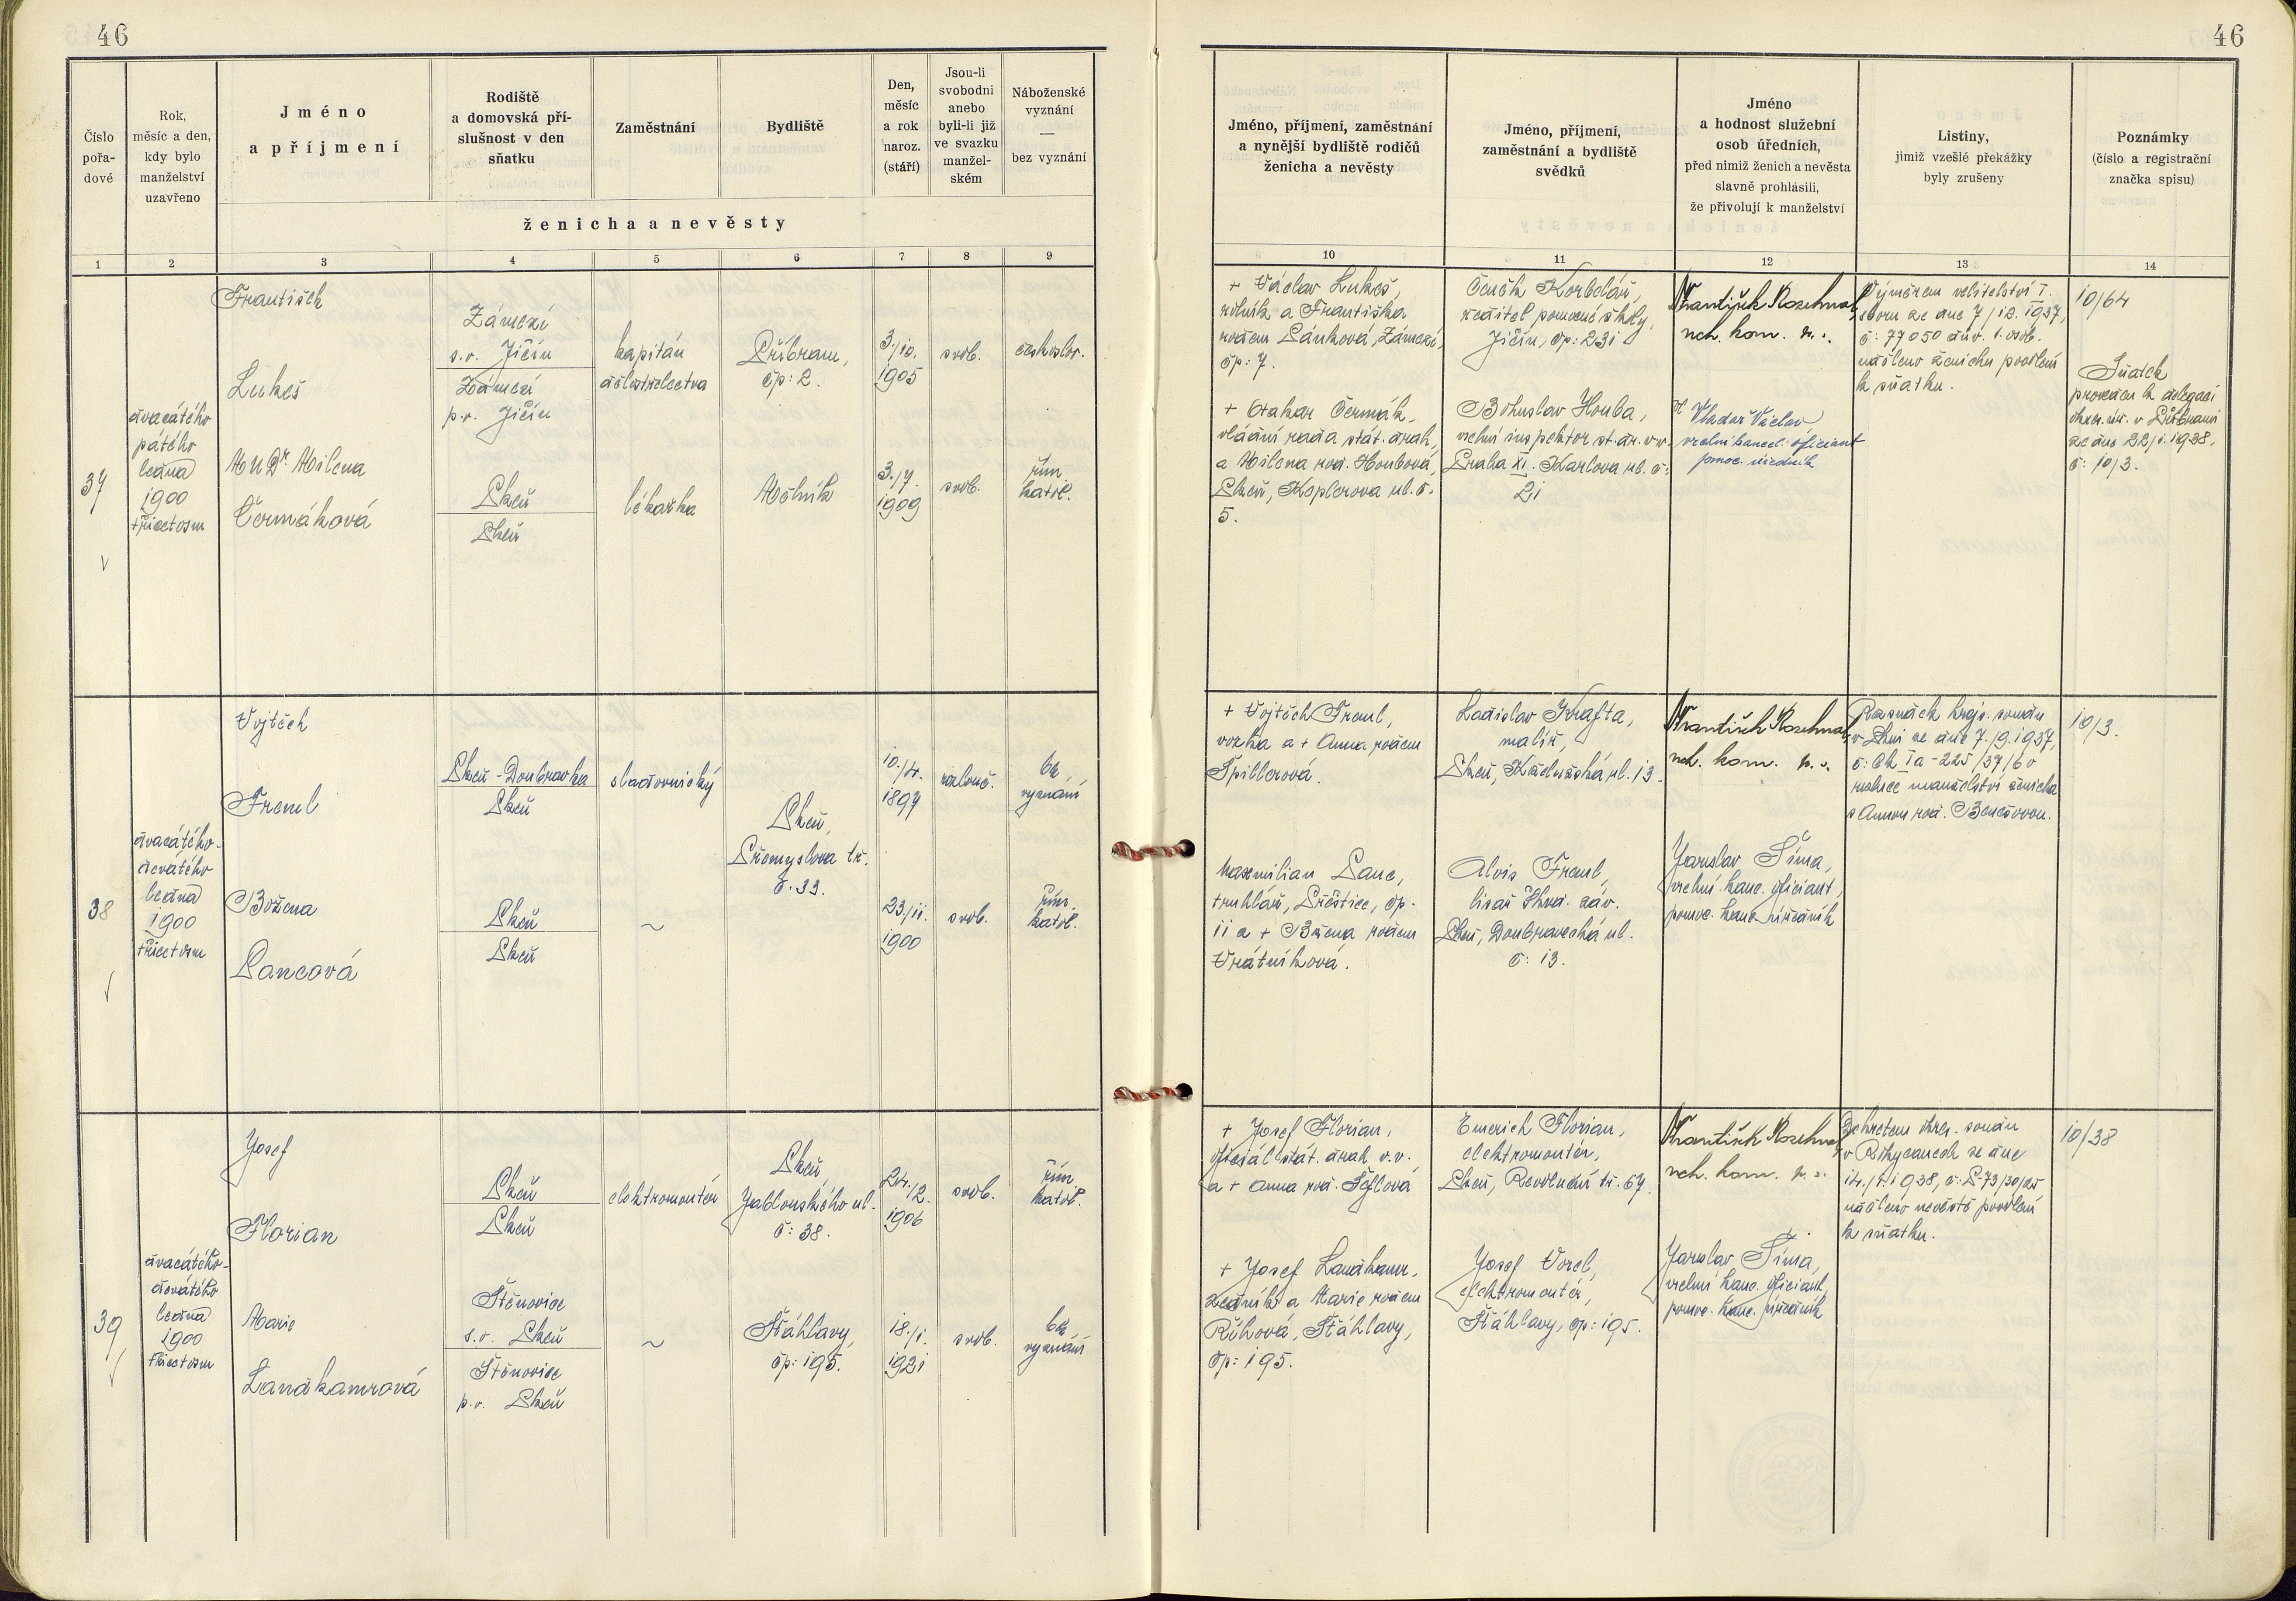 46
46
Číslo pořa- dové
Rok, měsíc a den, kdy bylo manželství uzavřeno
Jméno a příjmení
Rodiště a domovská pří- slušnost v den sňatku
Zaměstnání
Bydliště
Den, měsíc a rok naroz. (stáří)
Jsou-li svobodni anebo byli-li již ve svazku manžel- ském
Náboženské vyznání — bez vyznání
ženicha a nevěsty
1 2 3 4 5 6 7 8 9
Jméno, příjmení, zaměstnání a nynější bydliště rodičů ženicha a nevěsty
Jméno, příjmení, zaměstnání a bydliště svědků
Jméno a hodnost služební osob úředních, před nimiž ženich a nevěsta slavně prohlásili, že přivolují k manželství
Listiny, jimiž vzešlé překážky byly zrušeny
Poznámky (číslo a registrační značka spisu)
10 11 12 13 14
37
dvacátého
pátého
ledna
1900
třicetosm
František
Lukeš
MUDr Milena
Čermáková
Zámezí
s.o. Jičín
Zámezí
p.o. Jičín
Plzeň
Plzeň
kapitán
dělostřelectva
lékařka
Příbram,
čp: 2.
Mělník
3./10.
1905
3./7.
1909
svob.
svob.
českoslov.
řím.
katol.
+ Václav Lukeš,
rolník a Františka
rozen. Pánková, Zámezí,
čp: 7.
+ Otakar Čermák,
vládní rada stát. drah,
a Milena roz. Houbová,
Plzeň, Koplerova ul. č.
5.
Čeněk Korbelář,
ředitel pomocné školy,
Jičín, čp: 231
Bohuslav Houba,
vrchní inspektor st. dr. v.v.
Praha XI. Karlova ul. č:
21
František Rozehnal,
nch. kom.
Vladař Václav
vrchní kancel. oficiant
pomoc. úředník
Výměrem velitelství I.
sboru ze dne 7/12. 1937,
č: 77050 dův. 1. osob.
uděleno ženichu povolení
k sňatku.
10/64
Sňatek
proveden k delegaci
okres. úř. v Příbrami
ze dne 22/1. 1938,
č: 10/3.
38
dvacátého-
devátého
ledna
1900
třicetosm
Vojtěch
Freml
Božena
Pancová
Plzeň-Doubravka
Plzeň
Plzeň
Plzeň
sladovnický
~
Plzeň,
Přemyslova tř.
č. 33.
10./4.
1897
23/11.
1900
rozlouč.
svob.
bez
vyznání
řím.
katol.
+ Vojtěch Freml,
vozka a + Anna rozen
Špillerová.
Maxmilian Panc,
truhlář, Přeštice, čp.
11 a + Božena rozen
Vrátníková.
Ladislav Krafta,
malíř,
Plzeň, Koželužská ul. 13.
Alois Freml,
lisař Škod. záv.
Plzeň, Doubravecká ul.
č: 13.
František Rozehnal,
nch. kom.
Jaroslav Šíma,
vrchní kanc. oficiant,
pomoc. kanc. úředník
Rozsudek krajs. soudu
v Plzni ze dne 7./9. 1937,
č: Ck Ia-225/37/6 o
rozluce manželství ženicha
s Annou roz. Benešovou.
10/3.
39
dvacátého-
devátého
ledna
1900
třicetosm
Josef
Florian
Marie
Landkamrová
Plzeň
Plzeň
Štěnovice
s.o. Plzeň
Štěnovice
p.o. Plzeň
elektromontér
~
Plzeň,
Jablonského ul.
č: 38.
Šťáhlavy,
čp: 195.
24./2.
1906
18./1.
1921
svob.
svob.
řím.
katol.
bez
vyznání
+ Josef Florian,
oficiál stát. drah v.v.
a + Anna roz. Šeflová
+ Josef Landkamr,
zedník a Marie rozen
Říhová, Šťáhlavy,
čp: 195.
Emerich Florian,
elektromontér,
Plzeň, Revoluční tř. 67.
Josef Vorel,
elektromontér,
Šťáhlavy, čp: 195.
František Rozehnal,
nch. kom.
Jaroslav Šíma,
vrchní kanc. oficiant,
pomoc. kanc. úředník
Dekretem okres. soudu
v Rokycanech ze dne
14./1. 1938, č: P-73/30/25
uděleno nevěstě povolení
k sňatku.
10/38